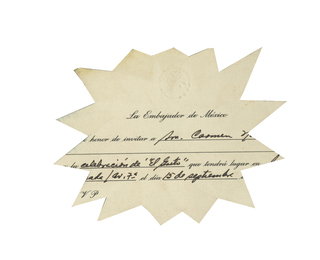 La Embajador de México
honor de invitar a Sra. Carmen
la celebración de "El Grito" que tendrá lugar en
el día 15 de septiembre
V P